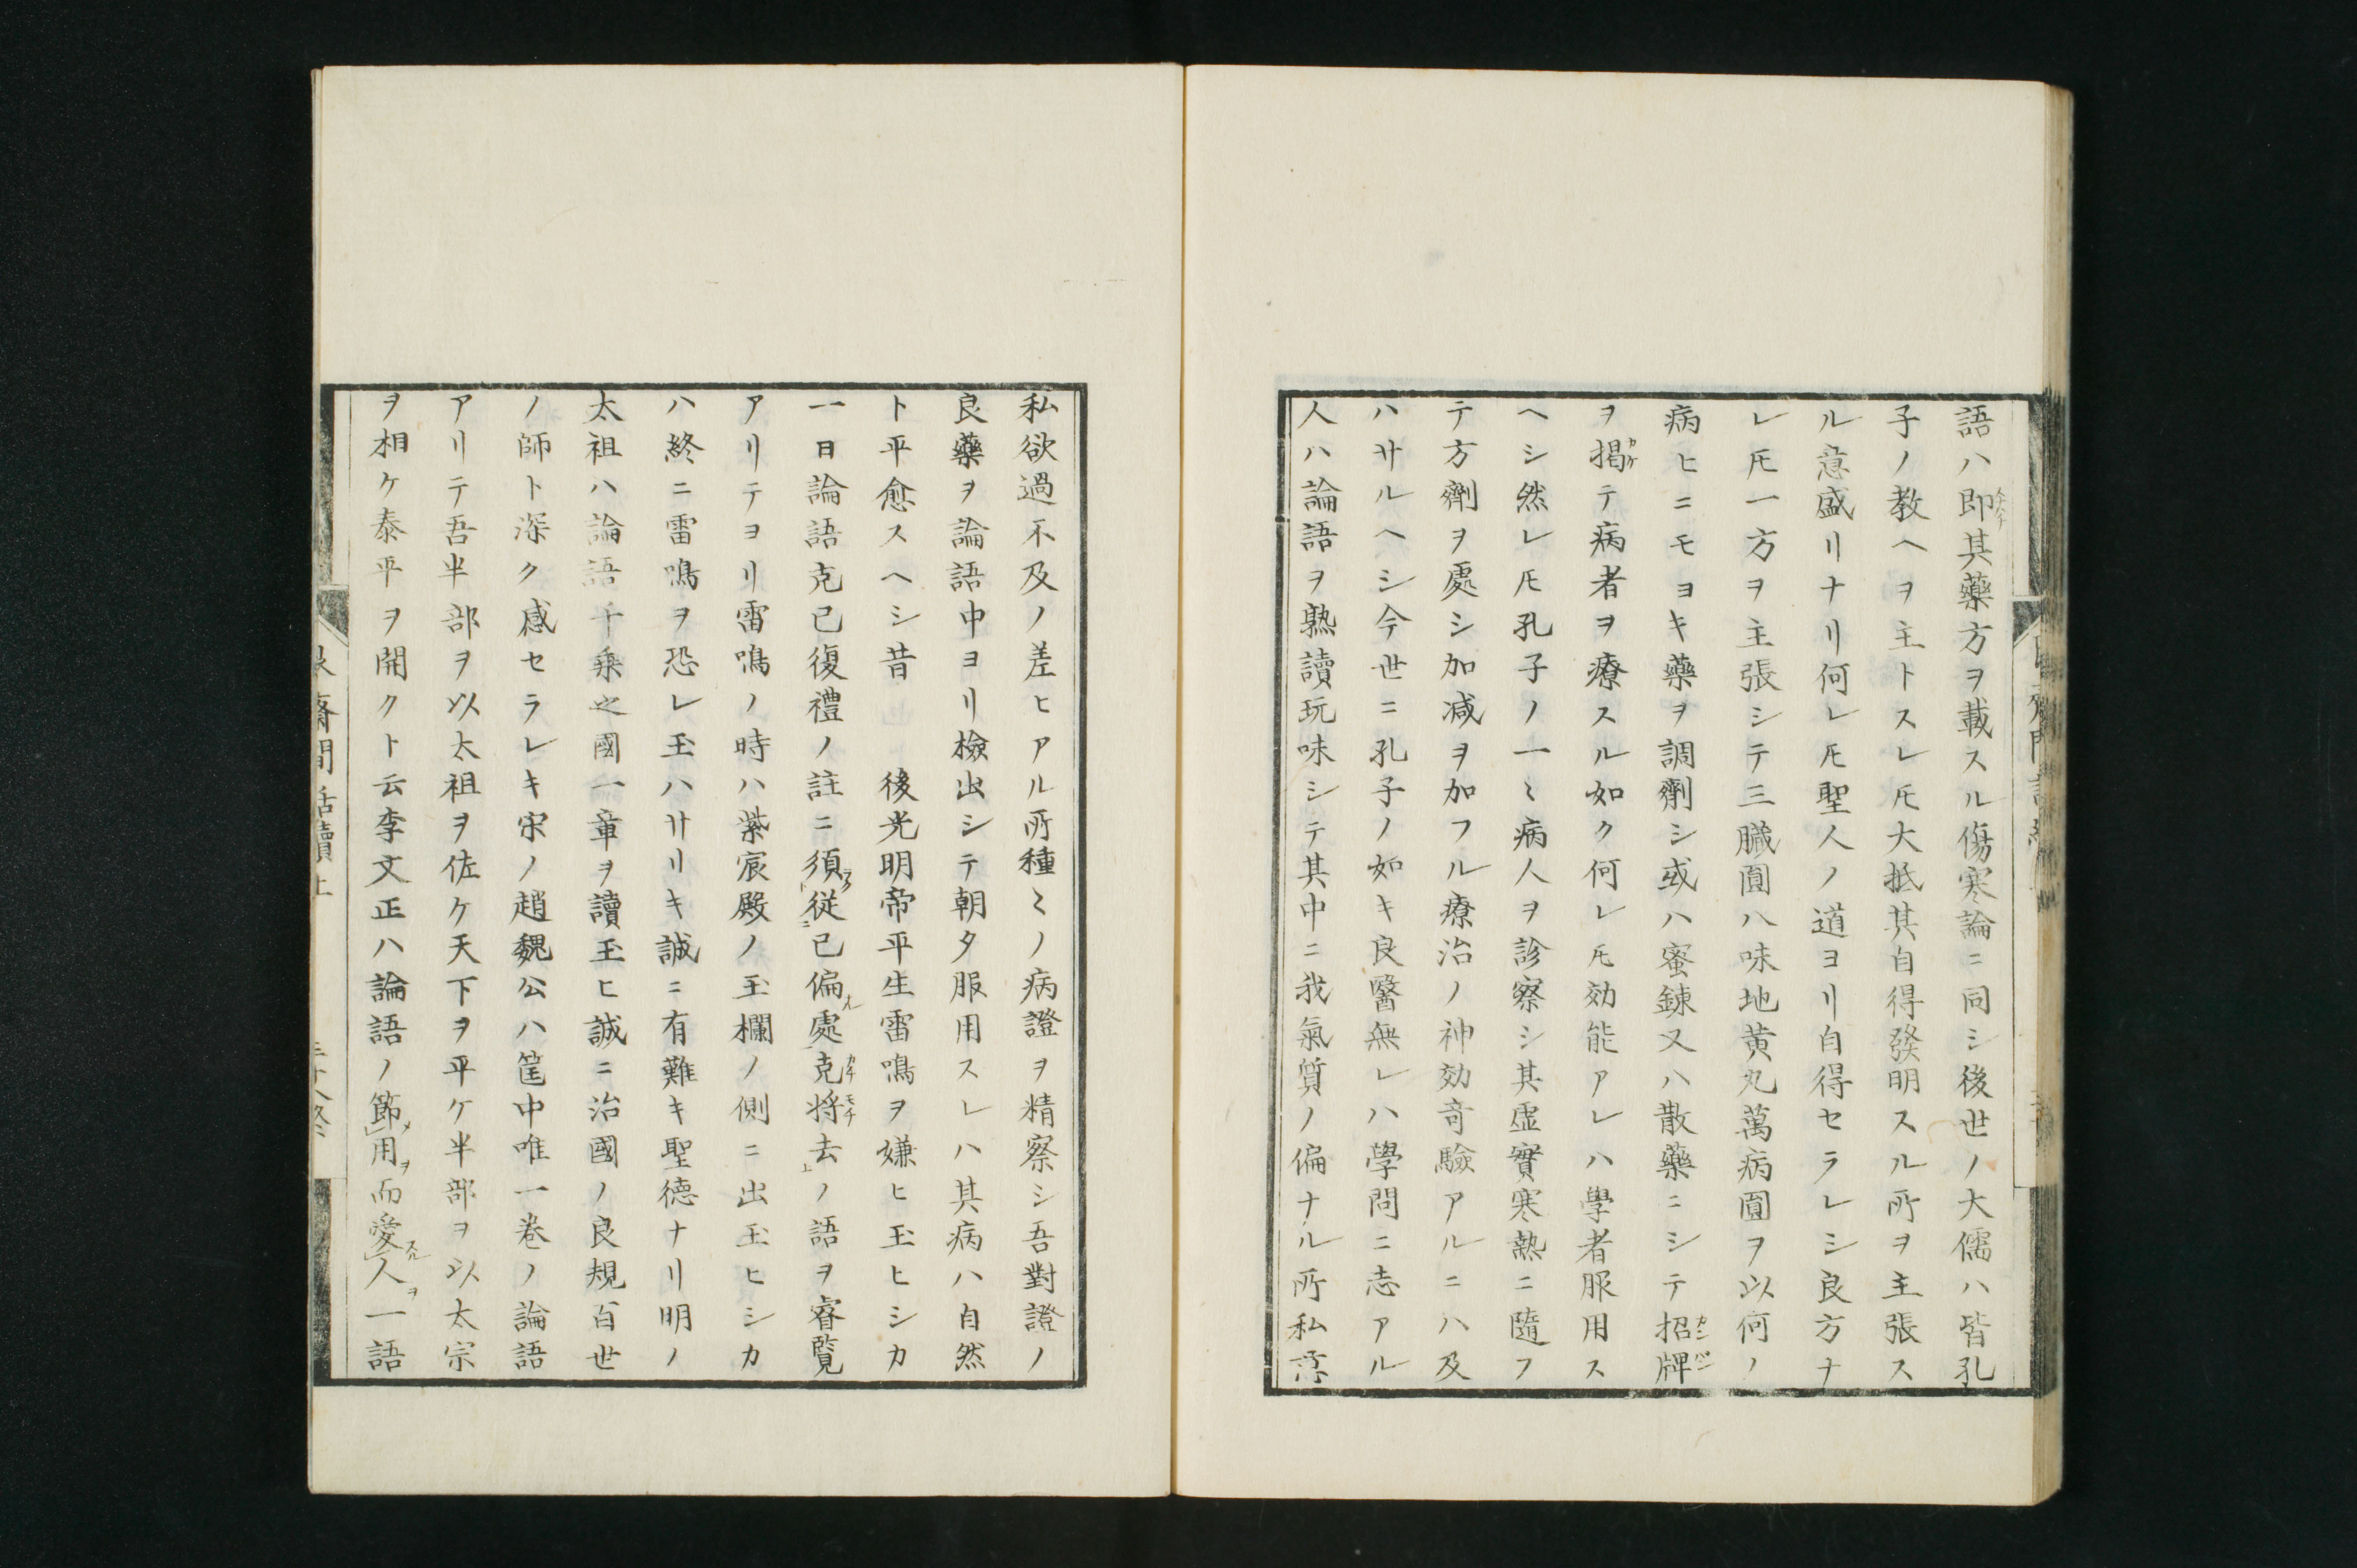 語ハ即其藥方ヲ載スル傷寒論ニ同シ後世ノ大儒ハ皆孔
子ノ教ヘヲ主トスレ𪜈大抵其自得發明スル所ヲ主張ス
ル意盛リナリ何レ𪜈聖人ノ道ヨリ自得セラレシ良方ナ
レ𪜈一方ヲ主張シテ三臓圓八味地黄丸萬病圓ヲ以何ノ
病ヒニモヨキ藥ヲ調劑シ或ハ蜜錬又ハ散藥ニシテ招牌
ヲ掲テ病者ヲ療スル如ク何レ𪜈効能アレハ學者服用ス
ヘシ然レ𪜈孔子ノ一〻病人ヲ診察シ其虚實寒熱ニ隨フ
テ方劑ヲ處シ加減ヲ加フル療治ノ神効竒驗アルニハ及
ハサルヘシ今世ニ孔子ノ如キ良醫無レハ學問ニ志アル
人ハ論語ヲ熟讀玩味シテ其中ニ我氣質ノ偏ナル所私意
私欲過不及ノ差ヒアル所種〻ノ病證ヲ精察シ吾對證ノ
良藥ヲ論語中ヨリ檢出シテ朝夕服用スレハ其病ハ自然
ト平愈スヘシ昔 後光明帝平生雷鳴ヲ嫌ヒ玉ヒシカ
一日論語克已復禮ノ註ニ須從已偏處克将去ノ語ヲ睿覽
アリテヨリ雷鳴ノ時ハ紫宸殿ノ玉欄ノ側ニ出玉ヒシカ
ハ終ニ雷鳴ヲ恐レ玉ハサリキ誠ニ有難キ聖德ナリ明ノ
太祖ハ論語千乘之國一章ヲ讀玉ヒ誠ニ治國ノ良規百世
ノ師ト深ク感セラレキ宋ノ趙魏公ハ筐中唯一巻ノ論語
アリテ吾半部ヲ以太祖ヲ佐ケ天下ヲ平ケ半部ヲ以太宗
ヲ相ケ泰平ヲ開クト云李文正ハ論語ノ節用而愛人一語